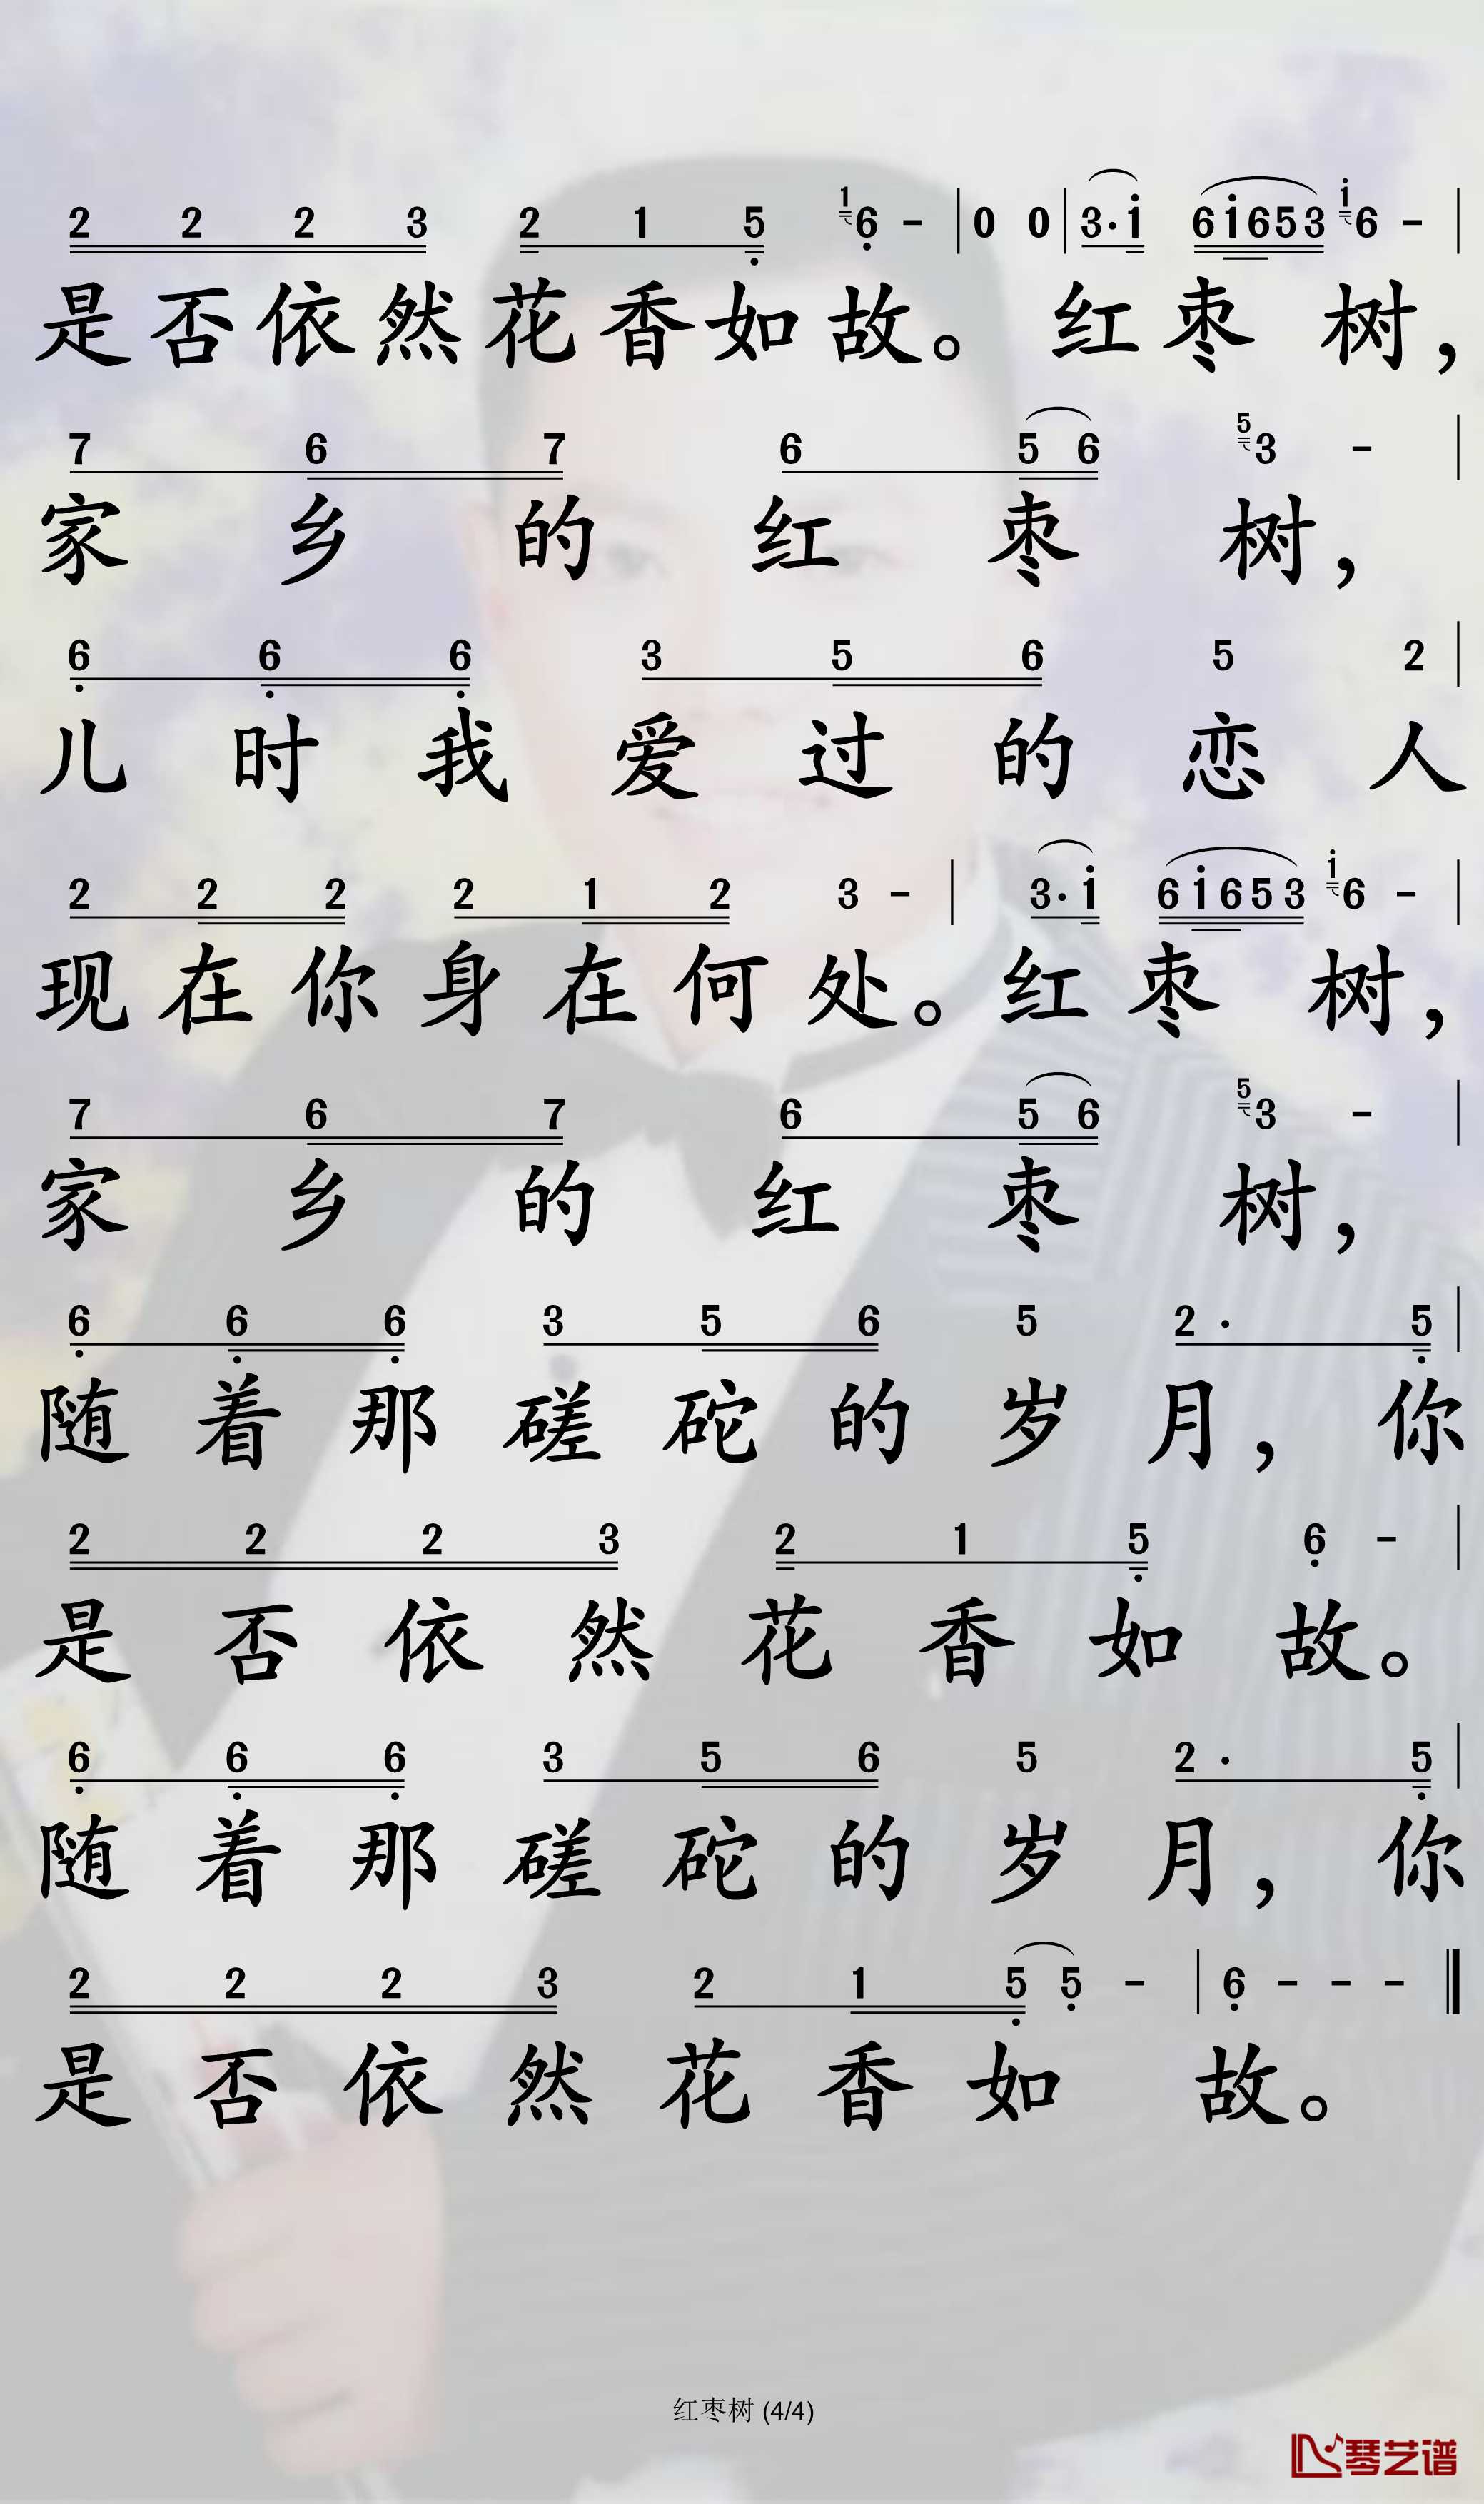 2 2 2 3 2 1 5 1 6 - | 0 0 | 3· i 6 i 6 5 3 i 6 - |
是否依然花香如故。 红枣 树，
7 6 7 6 5 6 5 3 - |
家 乡 的 红 枣 树，
6 6 6 3 5 6 5 2 |
儿 时 我 爱 过 的 恋 人
2 2 2 2 1 2 3 - | 3· i 6 i 6 5 3 i 6 - |
现 在 你 身 在 何 处。 红 枣 树，
7 6 7 6 5 6 5 3 - |
家 乡 的 红 枣 树，
6 6 6 3 5 6 5 2· 5 |
随 着 那 磋 砣 的 岁 月， 你
2 2 2 3 2 1 5 6 - |
是 否 依 然 花 香 如 故。
6 6 6 3 5 6 5 2· 5 |
随 着 那 磋 砣 的 岁 月， 你
2 2 2 3 2 1 5 5 - | 6 - - - ‖
是 否 依 然 花 香 如 故。
红枣树 (4/4)
琴艺谱